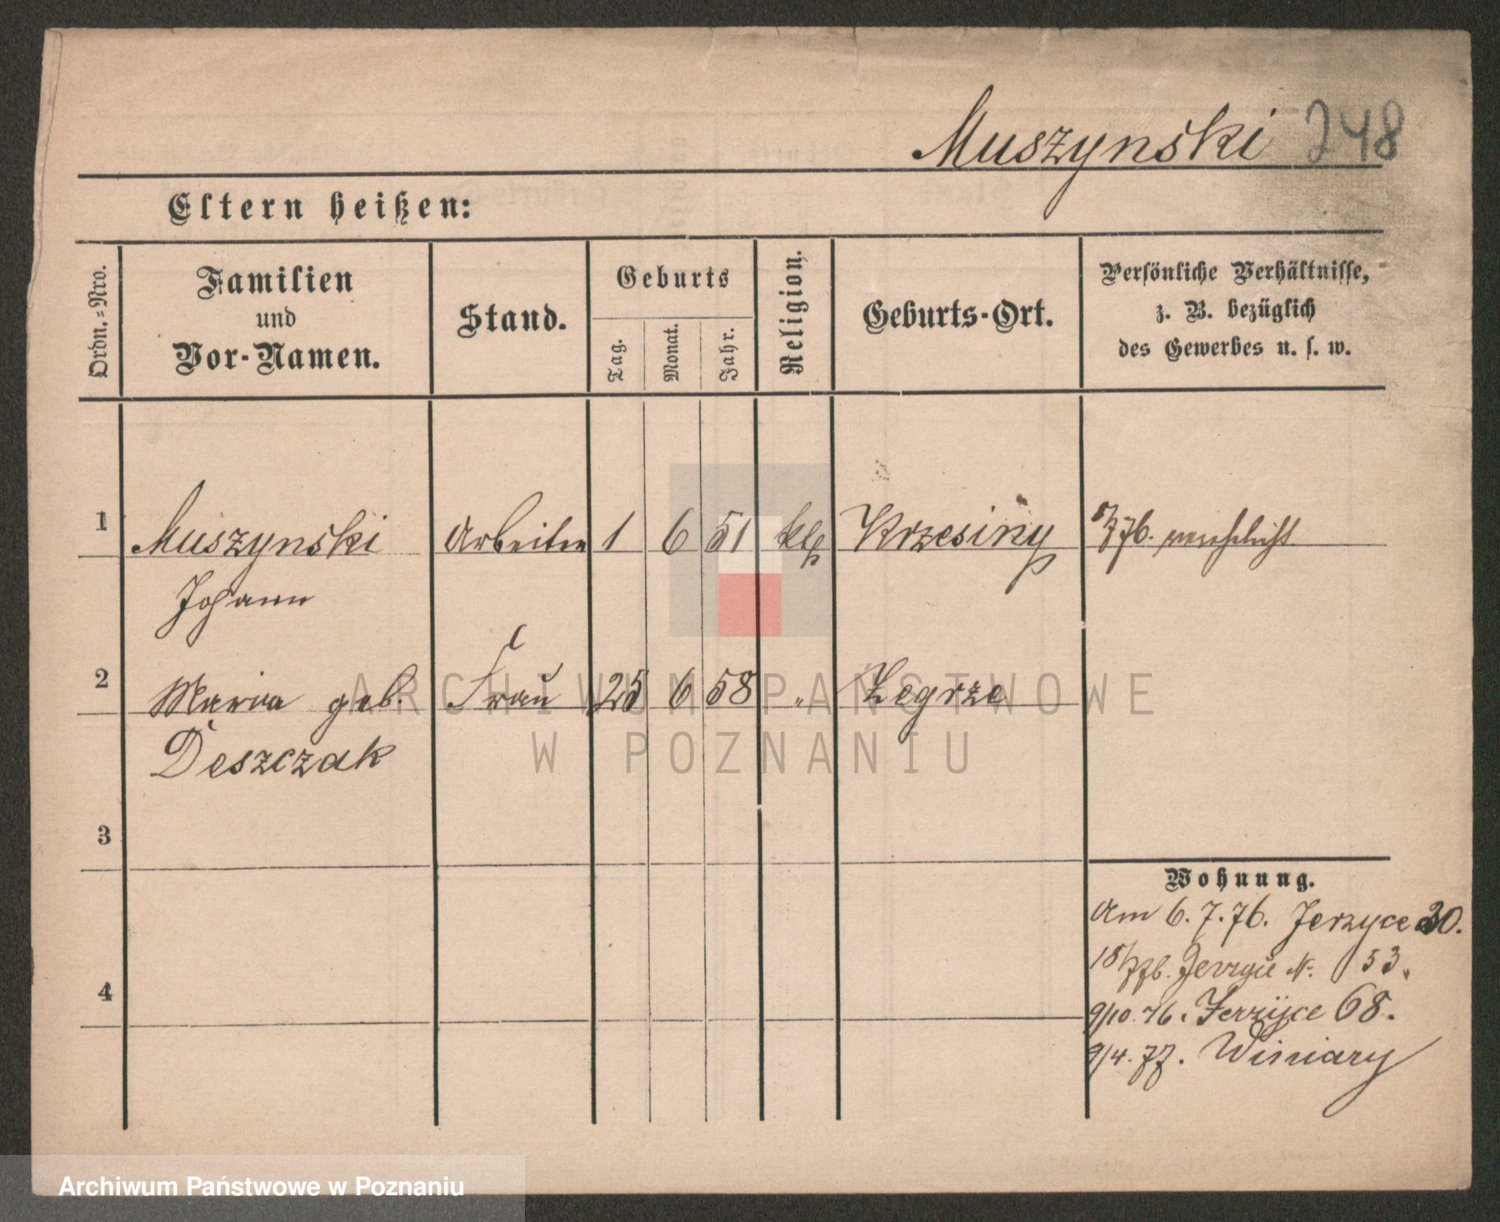 Muszynski 248
Eltern heißen:
Ordn.-Nro.
Familien
und
Vor-Namen.
Stand.
Geburts
Tag.
Monat.
Jahr.
Religion.
Geburts-Ort.
Persönliche Verhältnisse,
z. B. bezüglich
des Gewerbes u. s. w.
1 Muszynski Arbeiter 1 6 51 Krzesiny
Johann
2 Maria geb. Frau 25 6 58 " Zegrze
Deszczak
3
4
Wohnung.
Am 6.7.76. Jerzyce 30.
18/7 76. Jerzyce N. 53.
9/10. 76. Jerzyce 68.
9/4. 77. Winiary
ARCHIWUM PAŃSTWOWE
W POZNANIU
Archiwum Państwowe w Poznaniu